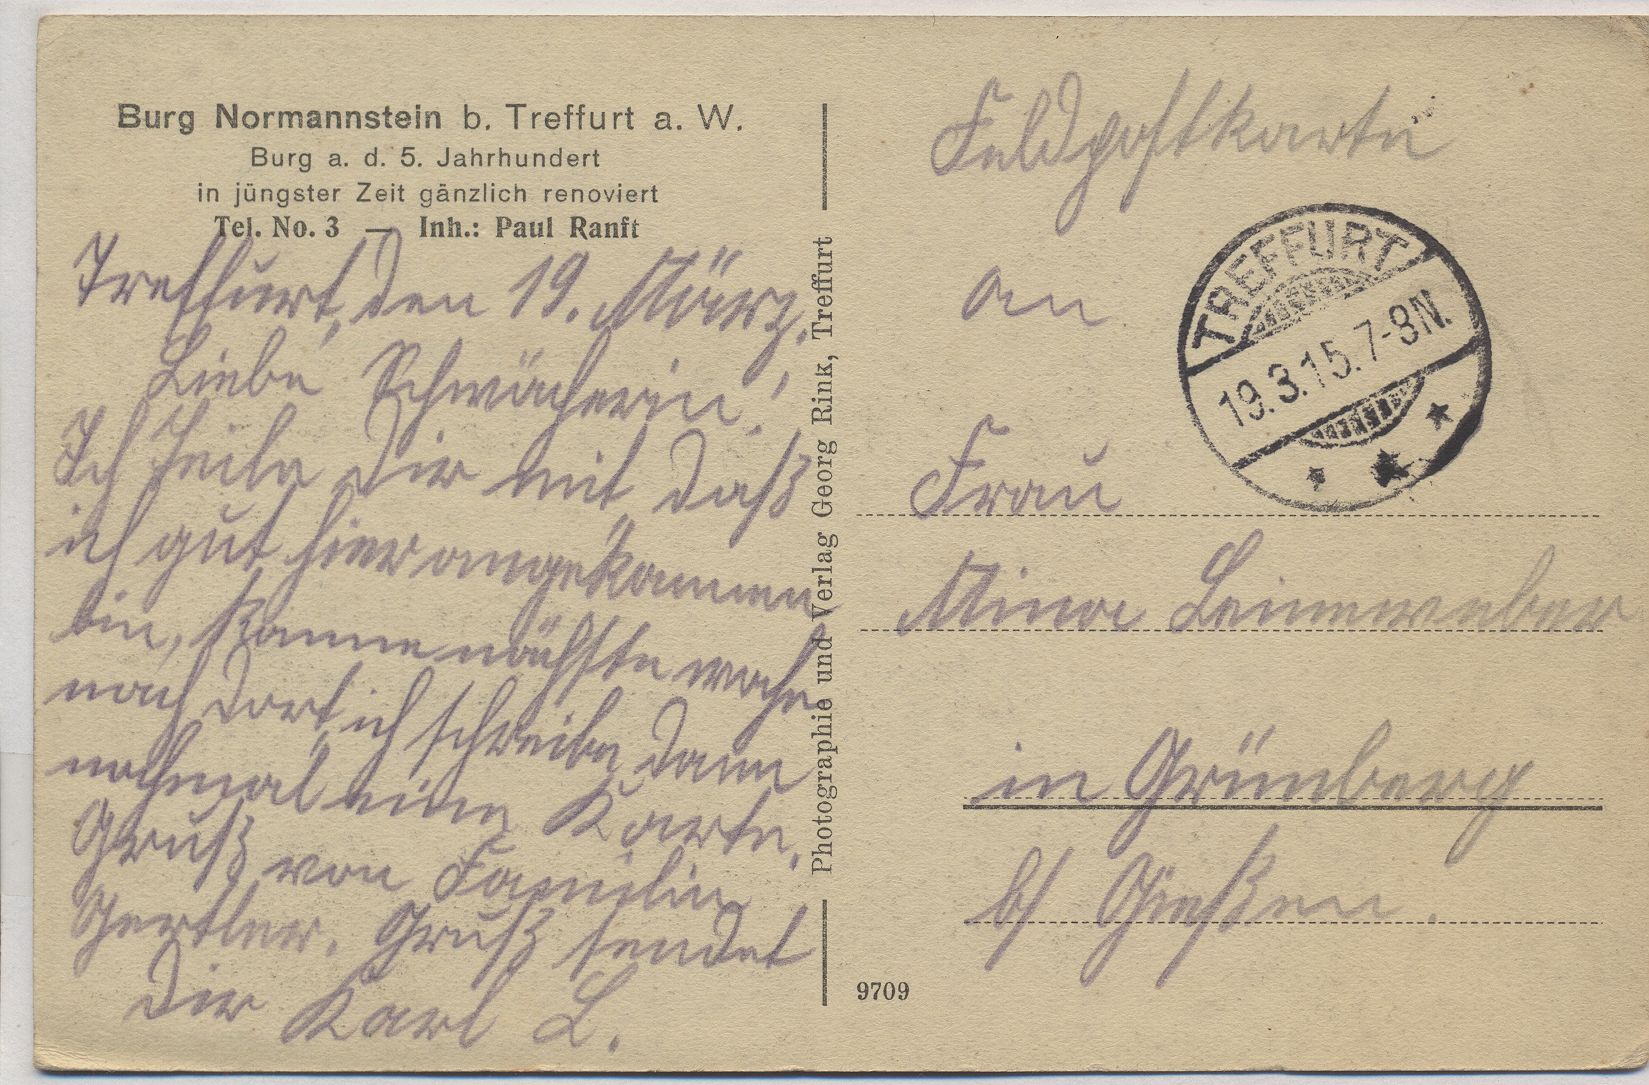 Burg Normannstein b. Treffurt a. W.
Burg a. d. 5. Jahrhundert
in jüngster Zeit gänzlich renoviert
Tel. No. 3 — Inh.: Paul Ranft
Treffurt, den 19. März.
Liebe Schwächerin!
Ich teile Dir mit daß
ich gut hier angekommen
bin, komme nächste woche
nach dort, ich schreibe dann
nochmal eine Karte.
Gruß von Familie
Gertler. Gruß sendet
Dir Karl L.
Photographie und Verlag Georg Rink, Treffurt
9709
Feldpostkarte
an
TREFFURT
19.3.15. 7-8N.
Frau
Mina Leineweber
in Grünberg
b/ Gießen.